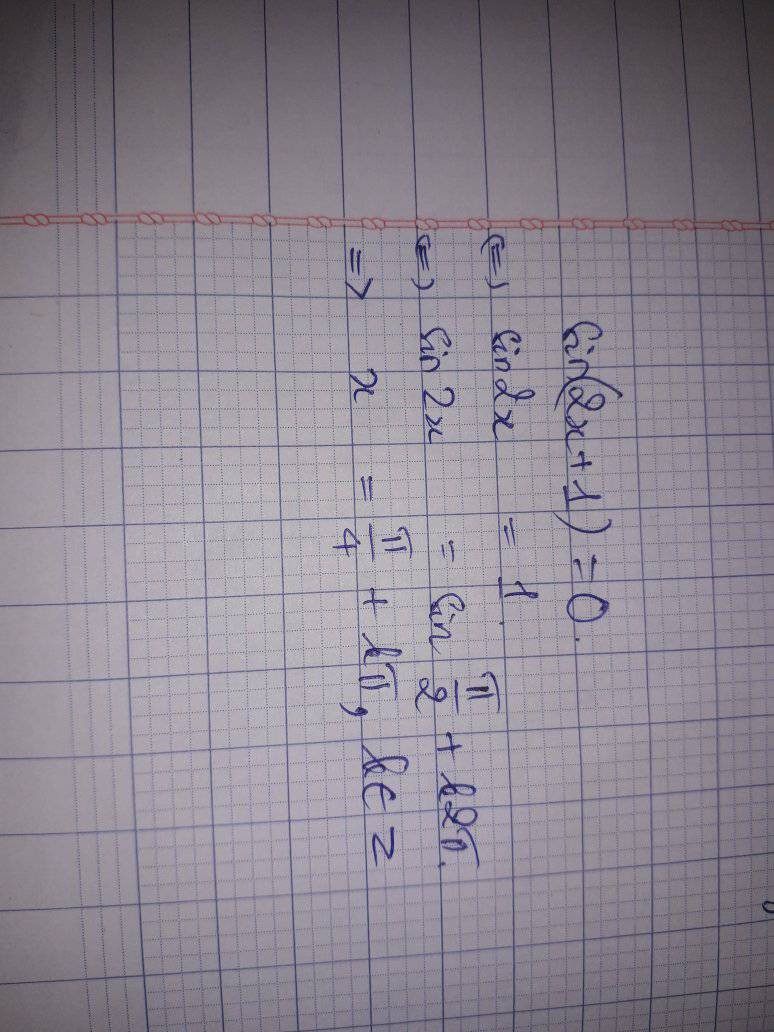 sin(2x+1) = 0.
<=> sin2x = 1.
<=> sin 2x = sin π/2 + k2π.
=> x = π/4 + kπ, k∈Z